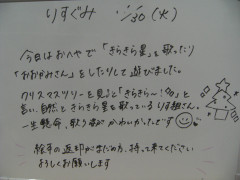 りすぐみ 11/30 (火)
今日はおへやで「きらきら星」を歌ったり
「おおかみさん」をしたりして遊びました。
クリスマスツリーを見ると「きらきら〜!!」と
言い、自然ときらきら星を歌っているりす組さん。
一生懸命、歌う姿がかわいかったです
絵本の返却がまだの方、持って来てください
よろしくお願いします